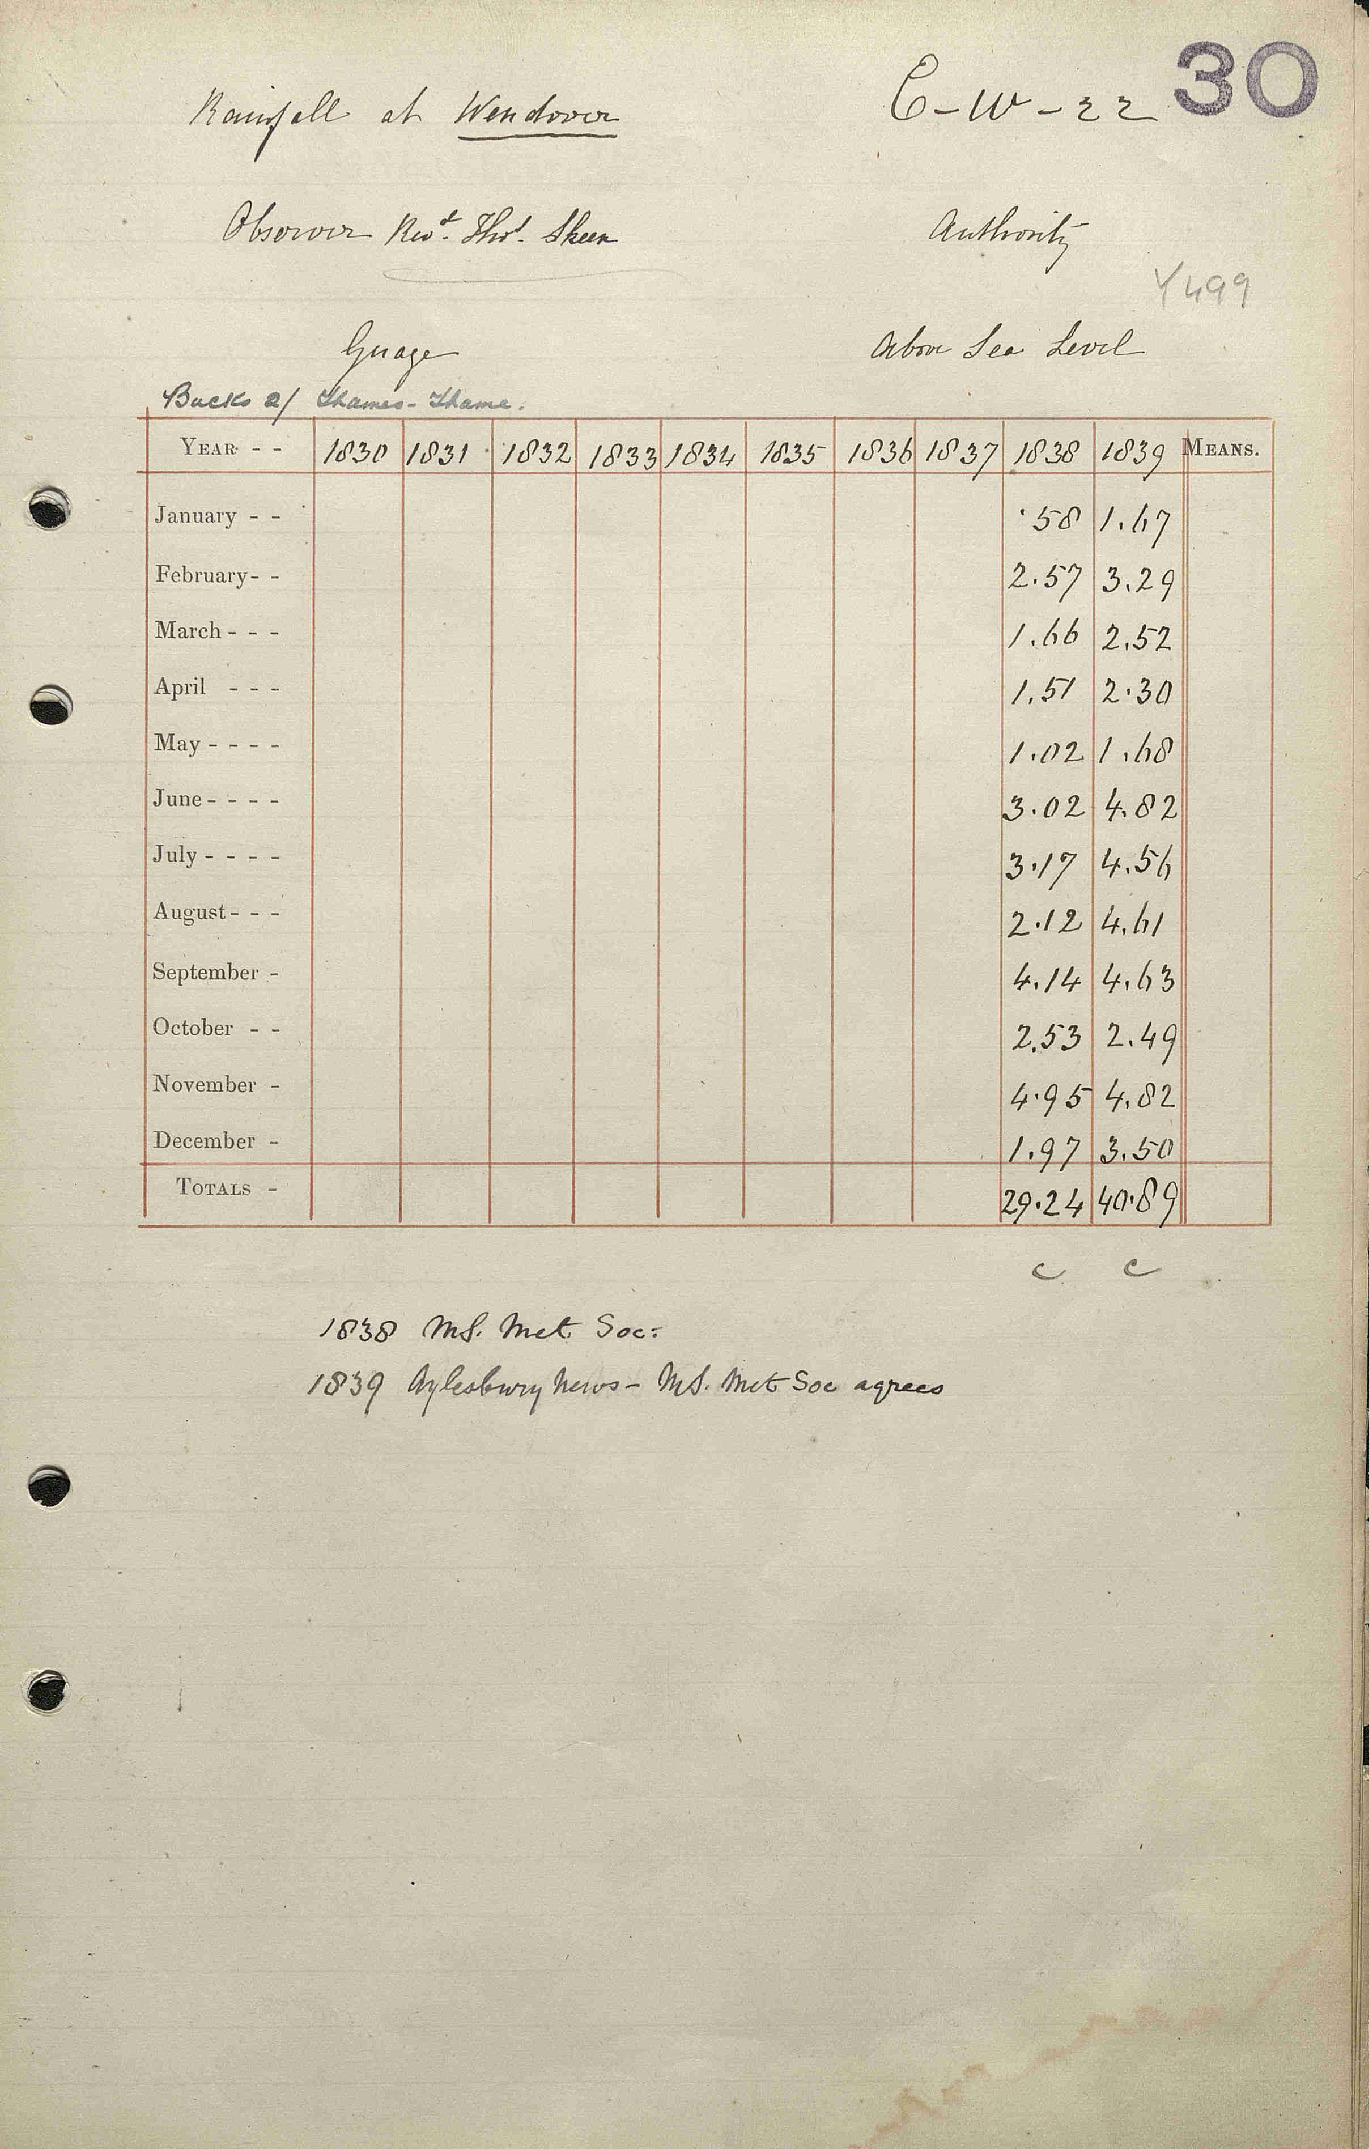 30
Rainfall at Wendover C-W-22
Observer Revd. Thos. Skeen Authority
Y499
Guage Above Sea Level
Bucks a/ Thames-Thame.
YEAR - - 1830 1831 1832 1833 1834 1835 1836 1837 1838 1839 MEANS.
January - - .58 1.67
February - - 2.57 3.29
March - - - 1.66 2.52
April - - - 1.51 2.30
May - - - - 1.02 1.68
June - - - - 3.02 4.82
July - - - - 3.17 4.56
August - - - 2.12 4.61
September - 4.14 4.63
October - - 2.53 2.49
November - 4.95 4.82
December - 1.97 3.50
TOTALS - 29.24 40.89
c c
1838 MS. Met. Soc:
1839 Aylesbury News - MS. Met Soc agrees